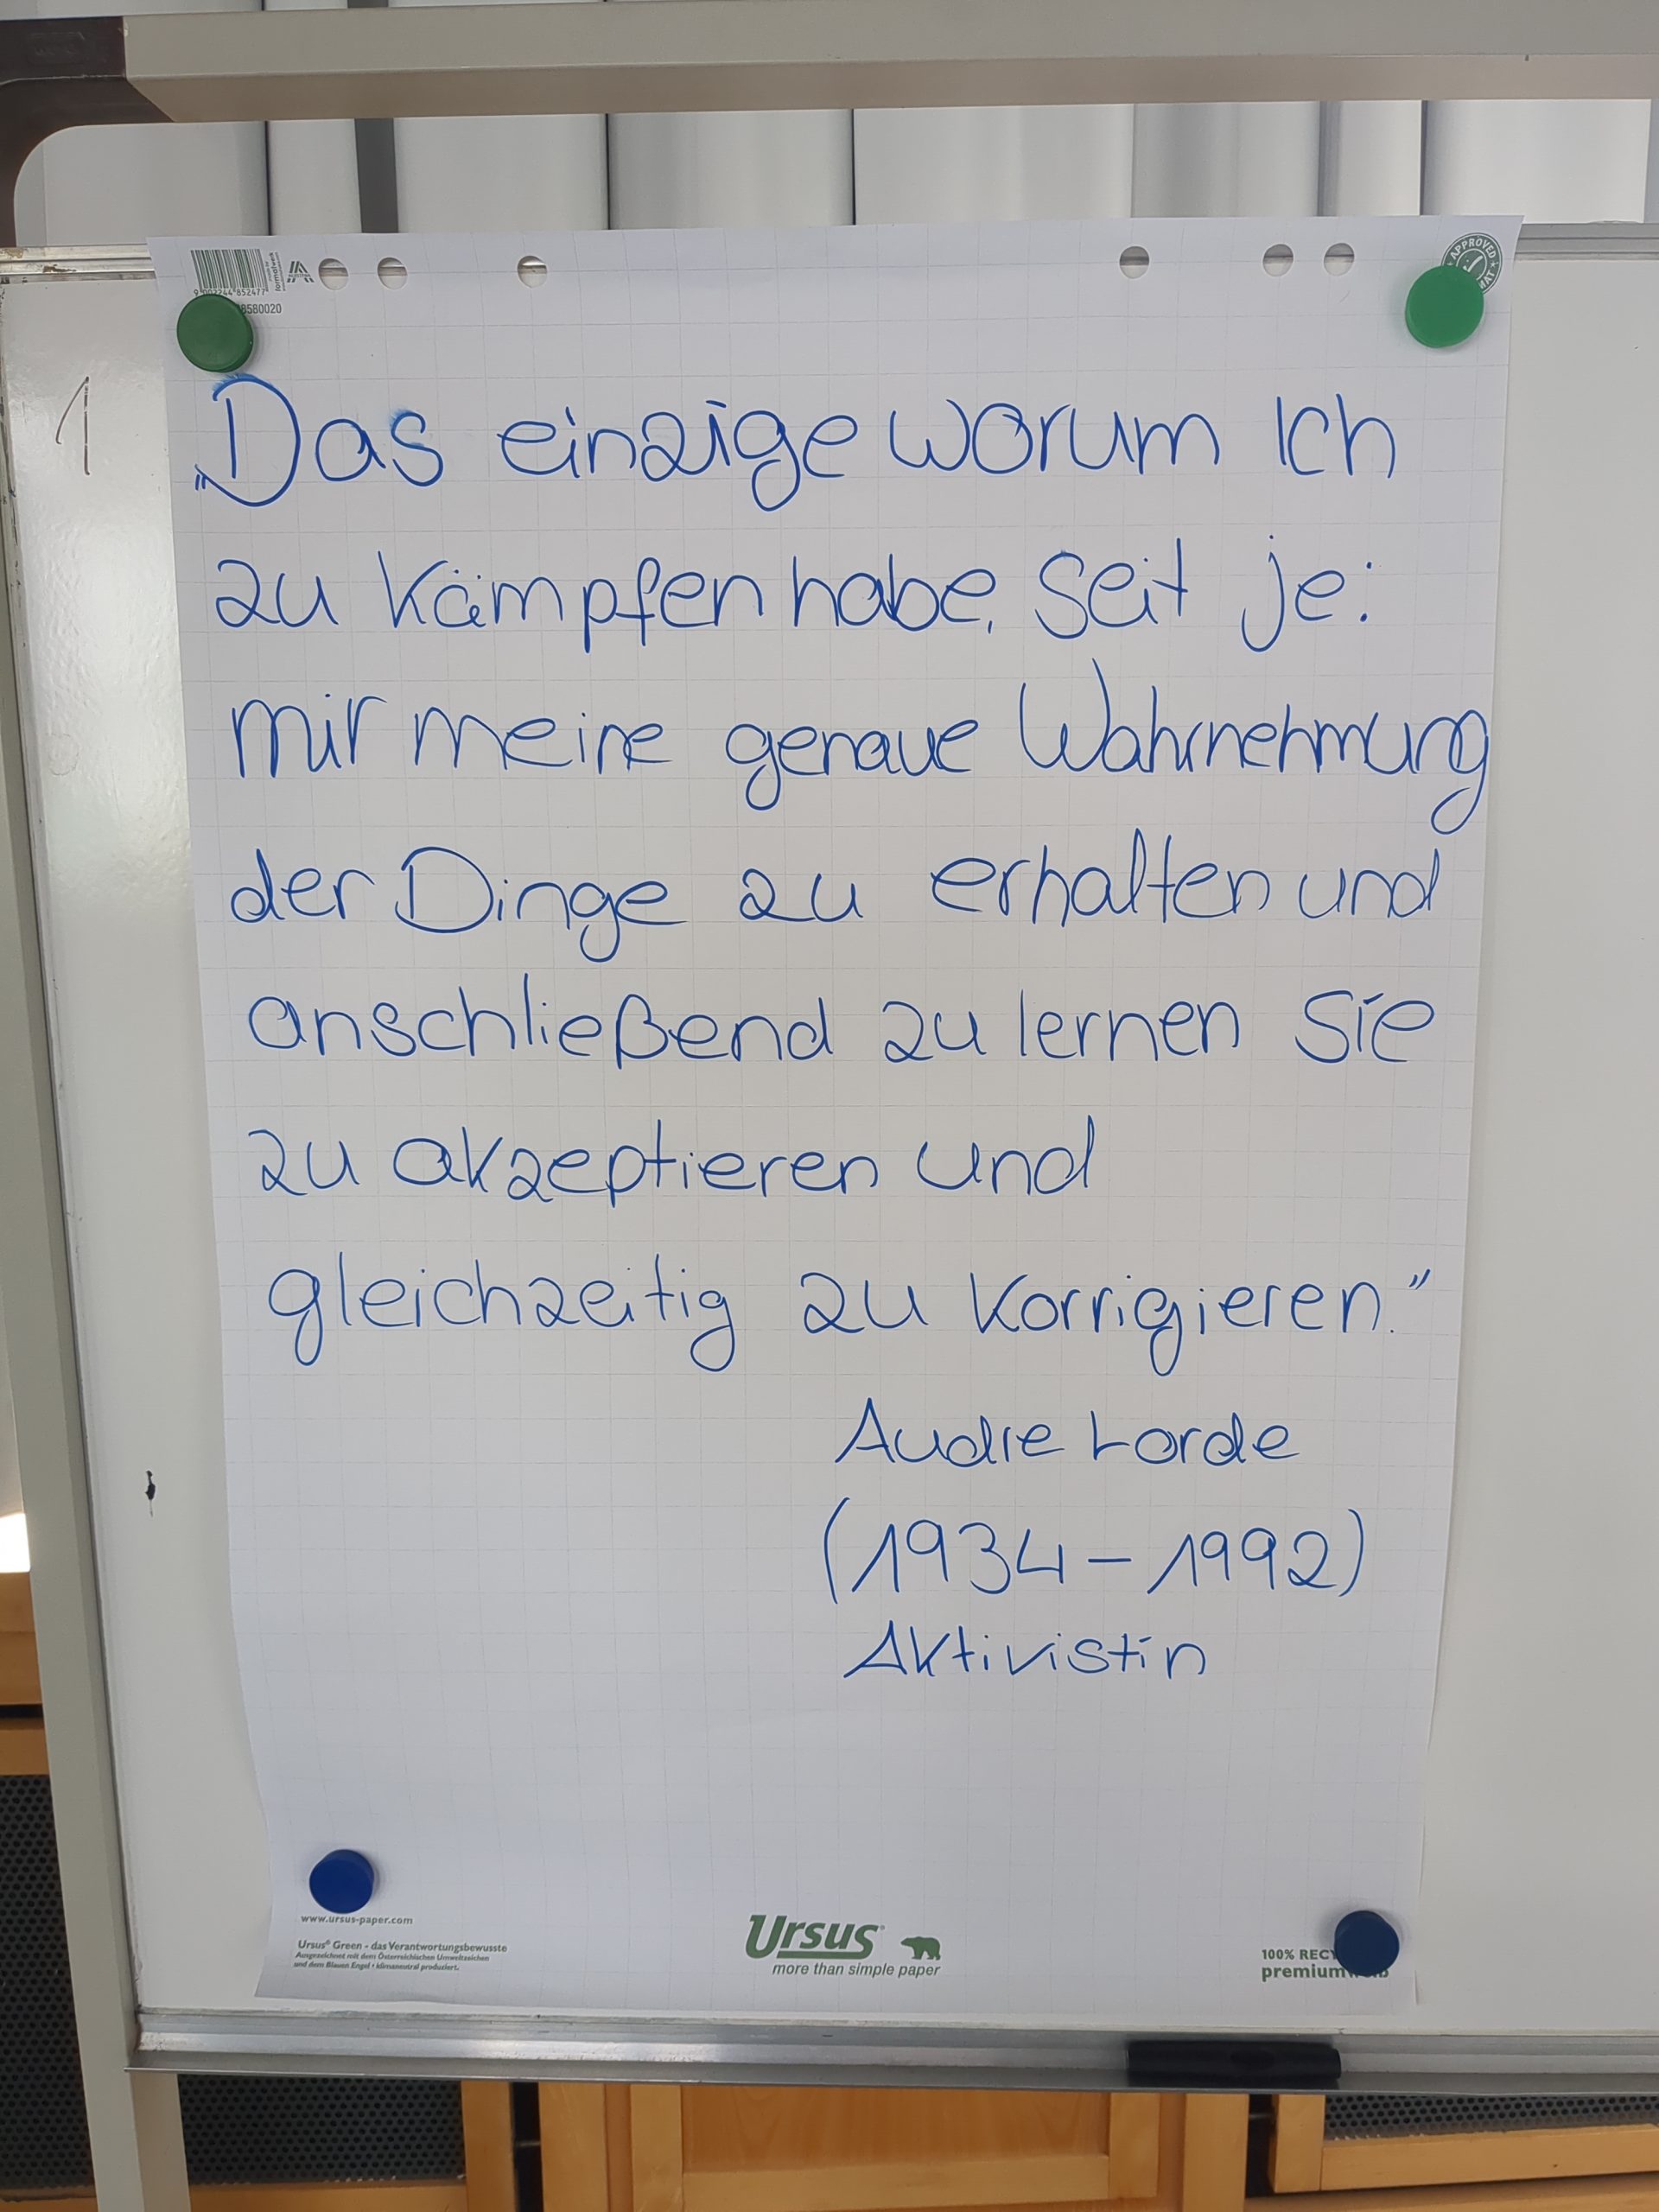 APPROVED
8580020
1
„Das einzige worum Ich
zu kämpfen habe, seit je:
mir meine genaue Wahrnehmung
der Dinge zu erhalten und
anschließend zu lernen sie
zu akzeptieren und
gleichzeitig zu korrigieren."
Audre Lorde
(1934 – 1992)
Aktivistin
www.ursus-paper.com
Ursus® Green - das Verantwortungsbewusste
Ausgezeichnet mit dem Österreichischen Umweltzeichen
und dem Blauen Engel • klimaneutral produziert.
Ursus®
more than simple paper
100%
premium